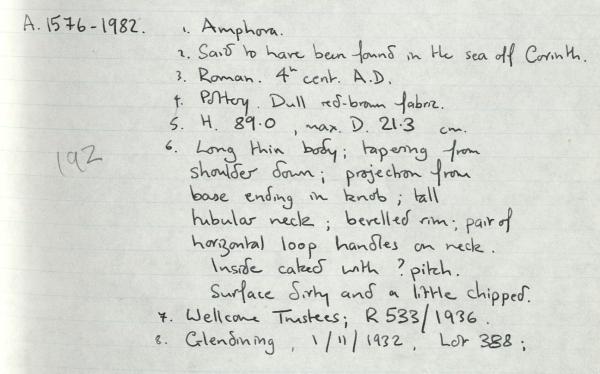 A.1576-1982. 1. Amphora.
2. Said to have been found in the sea off Corinth.
3. Roman. 4th cent. A.D.
4. Pottery. Dull red-brown fabric.
5. H. 89.0, max. D. 21.3 cm.
192
6. Long thin body; tapering from
shoulder down; projection from
base ending in knob; tall
tubular neck; bevelled rim; pair of
horizontal loop handles on neck.
Inside caked with ? pitch.
Surface dirty and a little chipped.
7. Wellcome Trustees; R 533/1936.
8. Glendining, 1/11/1932, Lot 388;